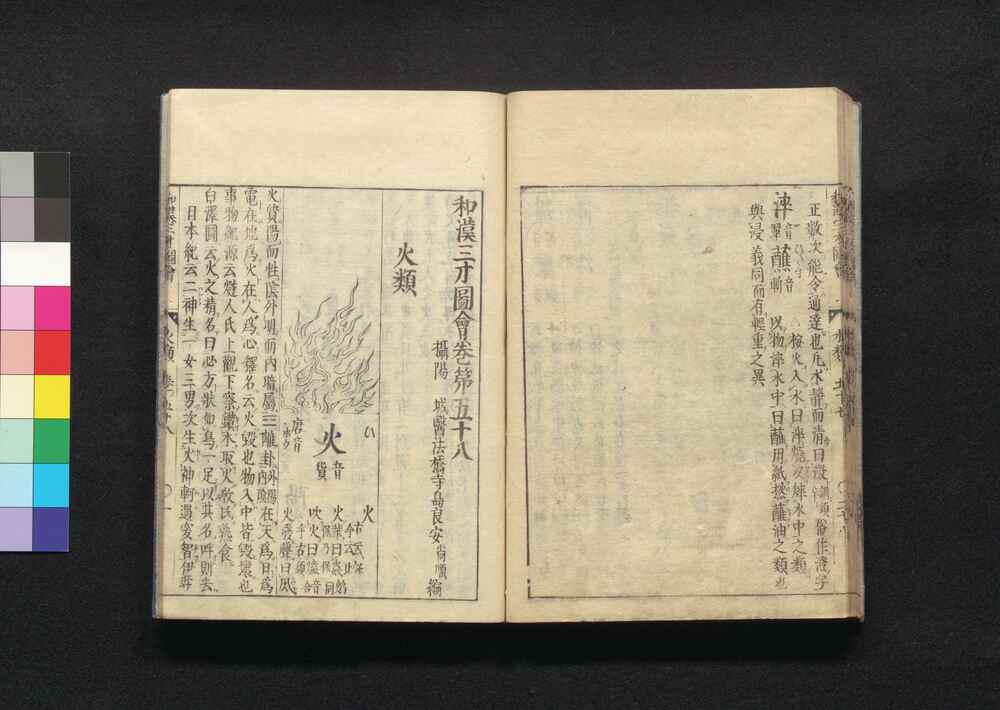 正救次能令通達也凡水靜而清曰澂 俗作澄字
淬 音翠 蘸 音斬 以物淬水中曰蘸用紙撚蘸油之類也
燒火入水曰淬燒刃淬水中之類
與浸義同而有輕重之異
和漢三才圖會卷第五十八
攝陽 城醫法橋寺島良安尚順編
火類
火 音貨
ひ
唐音
火
吹火曰
火發聲曰
火質陽而性陰外明而内暗屬三離卦外陽内陰在天爲日爲
電在地爲火在人爲心釋名云火毀也物入中皆毀壞也
事物紀源云燧人氏上觀下察鑽木取火教民熟食
白澤圖云火之精名曰必方狀如鳥一足以其名呼則去
日本紀云二神生一女三男次生火神軻遇突智伊弉
和漢三才圖會
火類